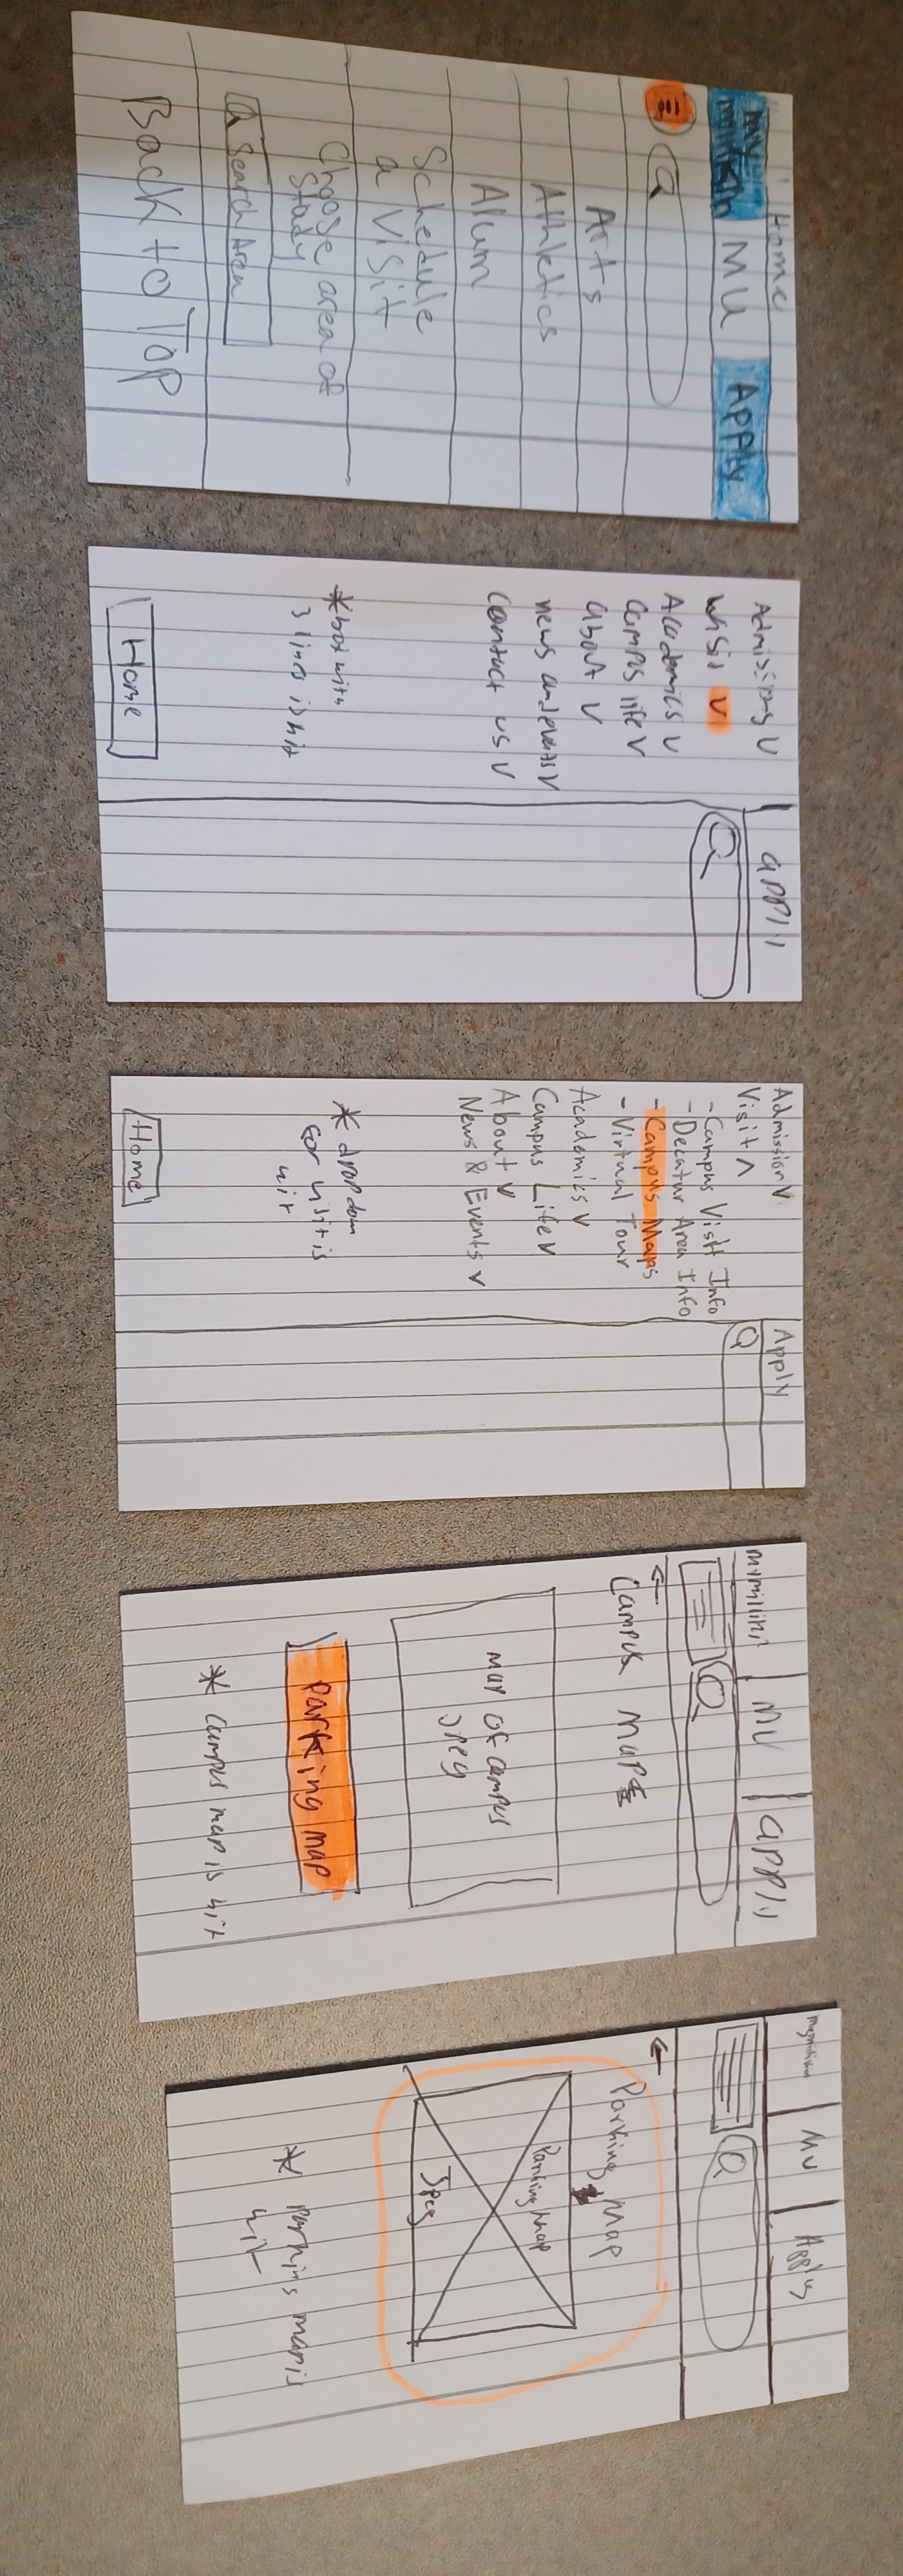 Home
my
MU
Apply
Arts
Athletics
Alum
Schedule
a Visit
Choose area of
Study
Search Area
Back to Top
Admissions V
Visit V
Academics V
Campus life V
about V
news and events V
Contact us V
APPly
* box with
3 lines is hit
Home
Admission V
Visit Λ
- Campus Visit Info
- Decatur Area Info
- Campus Maps
- Virtual Tour
Academics V
Campus Life V
About V
News & Events V
Apply
* drop down
for visit is
hit
Home
mymillikin
MU
apply
←
Campus Map
map of campus
Jpeg
parking map
* Campus map is hit
MU
Apply
←
Parking Map
Parking Map
Jpeg
* Parking map is
hit